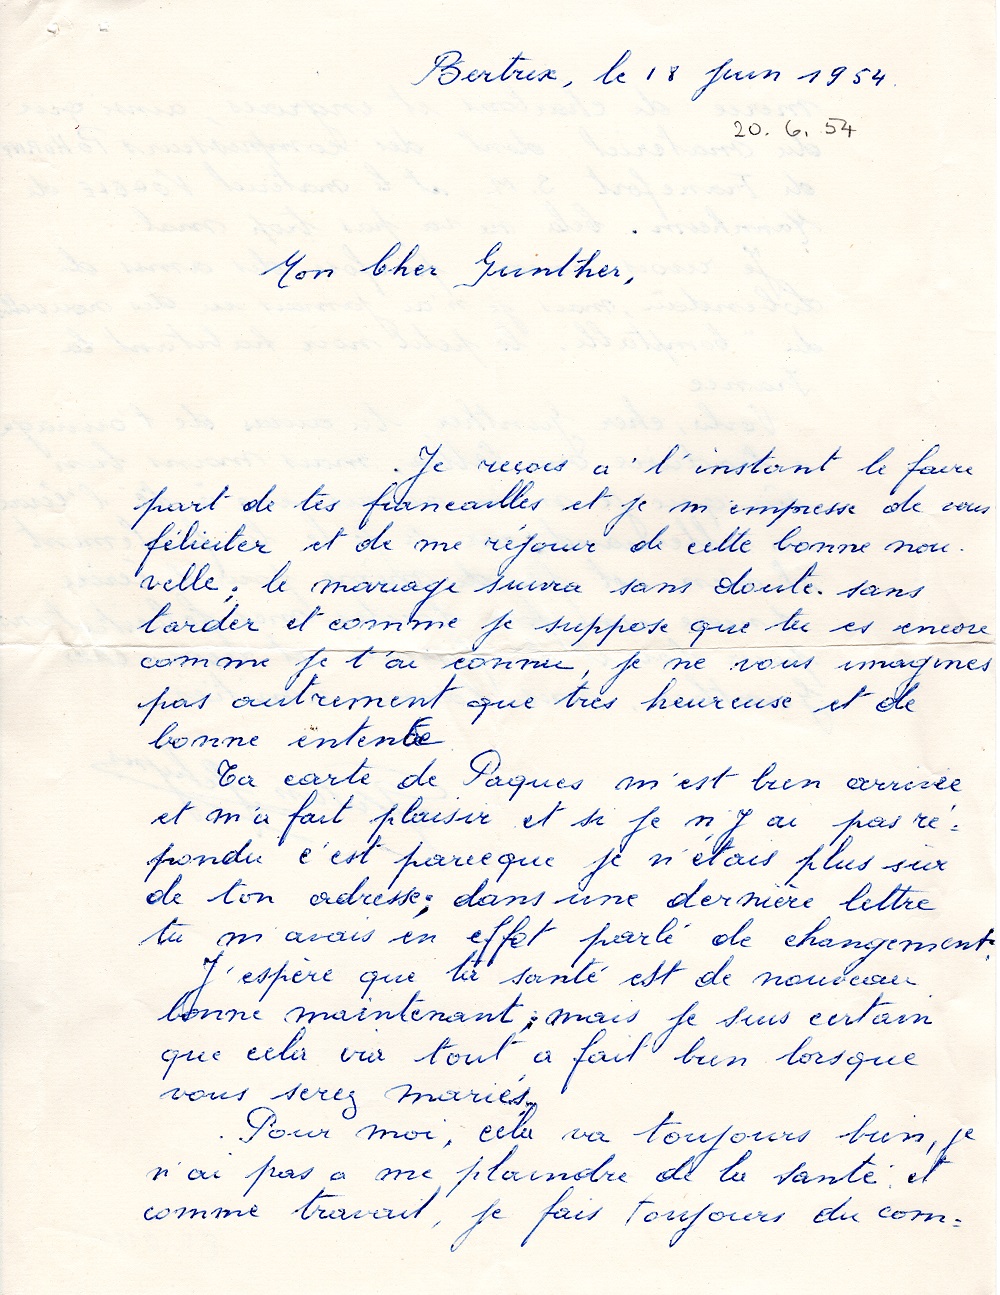 Bertrix, le 18 Juin 1954.
20. 6. 54
Mon Cher Gunther,
Je reçois a' l'instant le faire
part de tes fiancailles et je m'empresse de vous
féliciter et de me réjouir de cette bonne nou-
velle; le mariage suivra sans doute sans
tarder et comme je suppose que tu es encore
comme je t'ai connu, je ne vous imagines
pas autrement que très heureuse et de
bonne entente
Ta carte de Pâques m'est bien arrivée
et m'a fait plaisir et si je n'y ai pas ré=
pondu c'est parceque je n'étais plus sûr
de ton adresse; dans une dernière lettre
tu m'avais en effet parlé de changement.
J'espère que ta santé est de nouveau
bonne maintenant; mais je suis certain
que cela ira tout a fait bien lorsque
vous serez mariés.
Pour moi, cela va toujours bien, je
n'ai pas a me plaindre de la santé et
comme travail, je fais toujours du com=